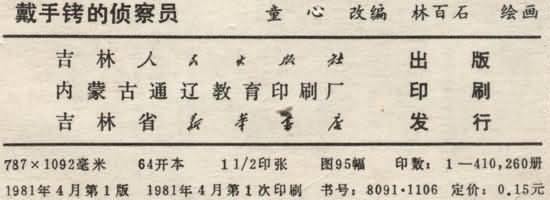 戴手铐的侦察员 童心 改编 林百石 绘画
吉林人民出版社 出版
内蒙古通辽教育印刷厂 印刷
吉林省新华书店 发行
787×1092毫米 64开本 1 1/2印张 图95幅 印数：1—410,260册
1981年4月第1版 1981年4月第1次印刷 书号：8091·1106 定价：0.15元